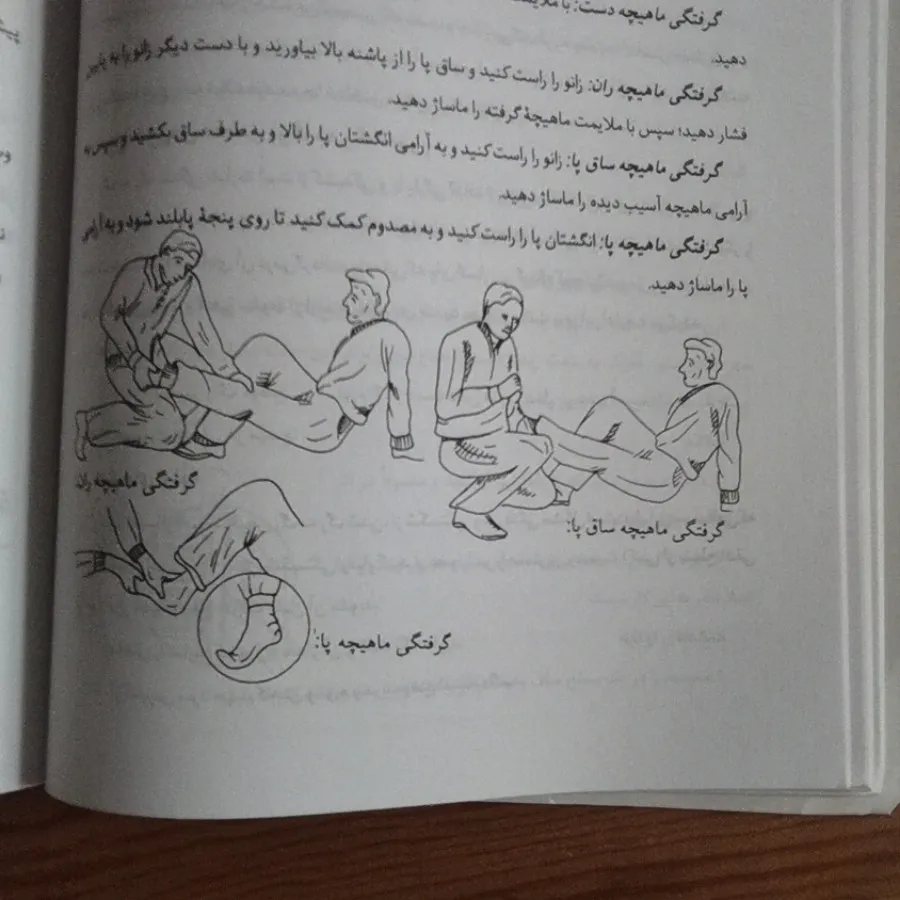 گرفتگی ماهیچه دست: با ملایمت
دهید.
گرفتگی ماهیچه ران: زانو را راست کنید و ساق پا را از پاشنه بالا بیاورید و با دست دیگر زانو را به پایین
فشار دهید؛ سپس با ملایمت ماهیچهٔ گرفته را ماساژ دهید.
گرفتگی ماهیچه ساق پا: زانو را راست کنید و به آرامی انگشتان پا را بالا و به طرف ساق بکشید و سپس به
آرامی ماهیچه آسیب دیده را ماساژ دهید.
گرفتگی ماهیچه پا: انگشتان پا را راست کنید و به مصدوم کمک کنید تا روی پنجهٔ پا بلند شود و به آرامی
پا را ماساژ دهید.
گرفتگی ماهیچه ران
گرفتگی ماهیچه ساق پا:
گرفتگی ماهیچه پا: